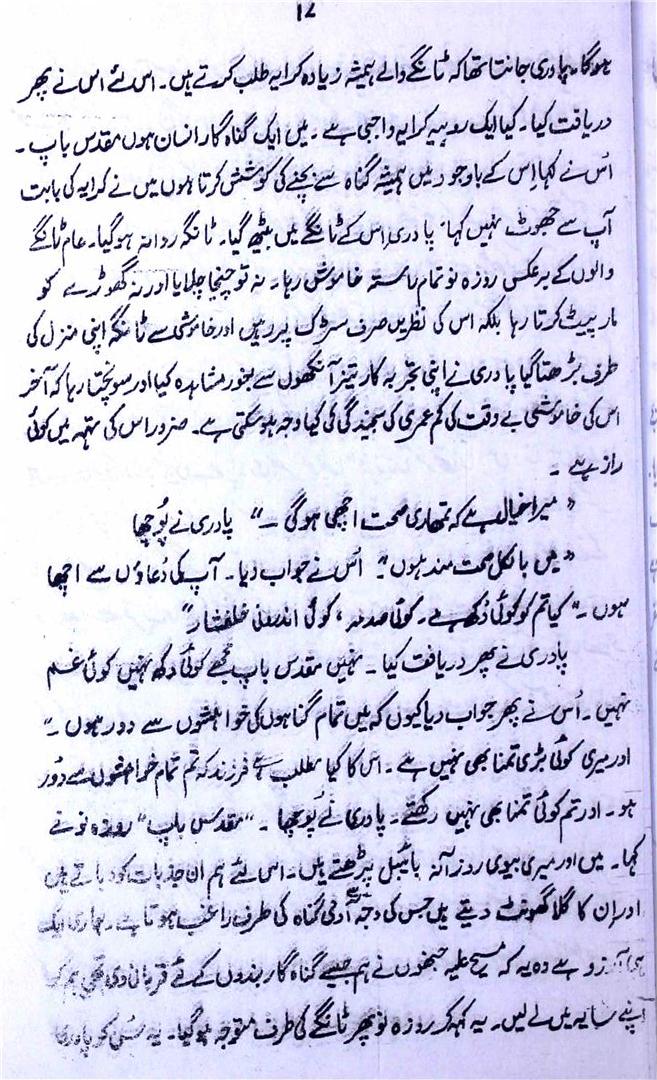 12
ہوگا۔ پادری جانتا تھا کہ ٹانگے والے ہمیشہ زیادہ کرایہ طلب کرتے ہیں۔ اس لئے اس نے پھر
دریافت کیا۔ کیا ایک روپیہ کرایہ واجبی ہے۔ میں ایک گناہ گار انسان ہوں مقدس باپ۔
اُس نے کہا اس کے باوجود میں ہمیشہ گناہ سے بچنے کی کوشش کرتا ہوں میں نے کرایہ کی بابت
آپ سے جھوٹ نہیں کہا" پادری اس کے ٹانگے میں بیٹھ گیا۔ ٹانگہ روانہ ہو گیا۔ عام ٹانگے
والوں کے برعکس روزہ نو تمام راستہ خاموش رہا۔ نہ تو چیخا چلایا اور نہ گھوڑے کو
مار پیٹ کرتا رہا بلکہ اس کی نظریں صرف سڑک پر رہیں اور خاموشی سے ٹانگہ اپنی منزل کی
طرف بڑھتا گیا پادری نے اپنی تجربہ کار تیز آنکھوں سے بغور مشاہدہ کیا اور سونچتا رہا کہ آخر
اس کی خاموشی بے وقت کی کم عمری کی سنجیدگی کی کیا وجہ ہو سکتی ہے۔ ضرور اس کی تہہ میں کوئی
راز ہے ۔
"میرا خیال ہے کہ تمھاری صحت اچھی ہوگی ۔" پادری نے پُوچھا
"میں بالکل صحت مند ہوں" اُس نے جواب دیا۔ آپ کی دُعاؤں سے اچھا
ہوں ۔" کیا تم کو کوئی دُکھ ہے۔ کوئی صدمہ، کوئی اندرونی خلفشار"
پادری نے پھر دریافت کیا ۔ نہیں مقدس باپ مجھے کوئی دکھ نہیں کوئی غم
نہیں ۔ اُس نے پھر جواب دیا کیوں کہ میں تمام گناہوں کی خواہشوں سے دور ہوں ۔"
اور میری کوئی بڑی تمنا بھی نہیں ہے ۔ اس کا کیا مطلب ہے فرزند کہ تم تمام خواہشوں سے دُور
ہو ۔ اور تم کوئی تمنا بھی نہیں رکھتے۔ پادری نے پُوچھا ۔ "مقدس باپ" روزہ نو نے
کہا۔ میں اور میری بیوی روزآنہ بائیبل پڑھتے ہیں۔ اس لئے ہم ان جذبات کو دباتے ہیں
اور اِن کا گلا گھونٹ دیتے ہیں جس کی وجہ سے آدمی گناہ کی طرف راغب ہوتا ہے۔ ہماری ایک
ہی آرزو ہے وہ یہ کہ مسیح علیہ جنھوں نے ہم جیسے گناہ گار بندوں کے لئے قربانی دی تھی ہم کو
اپنے سایہ میں لے لیں۔ یہ کہہ کر روزہ نو پھر ٹانگے کی طرف متوجہ ہو گیا۔ یہ سُن کر پادری